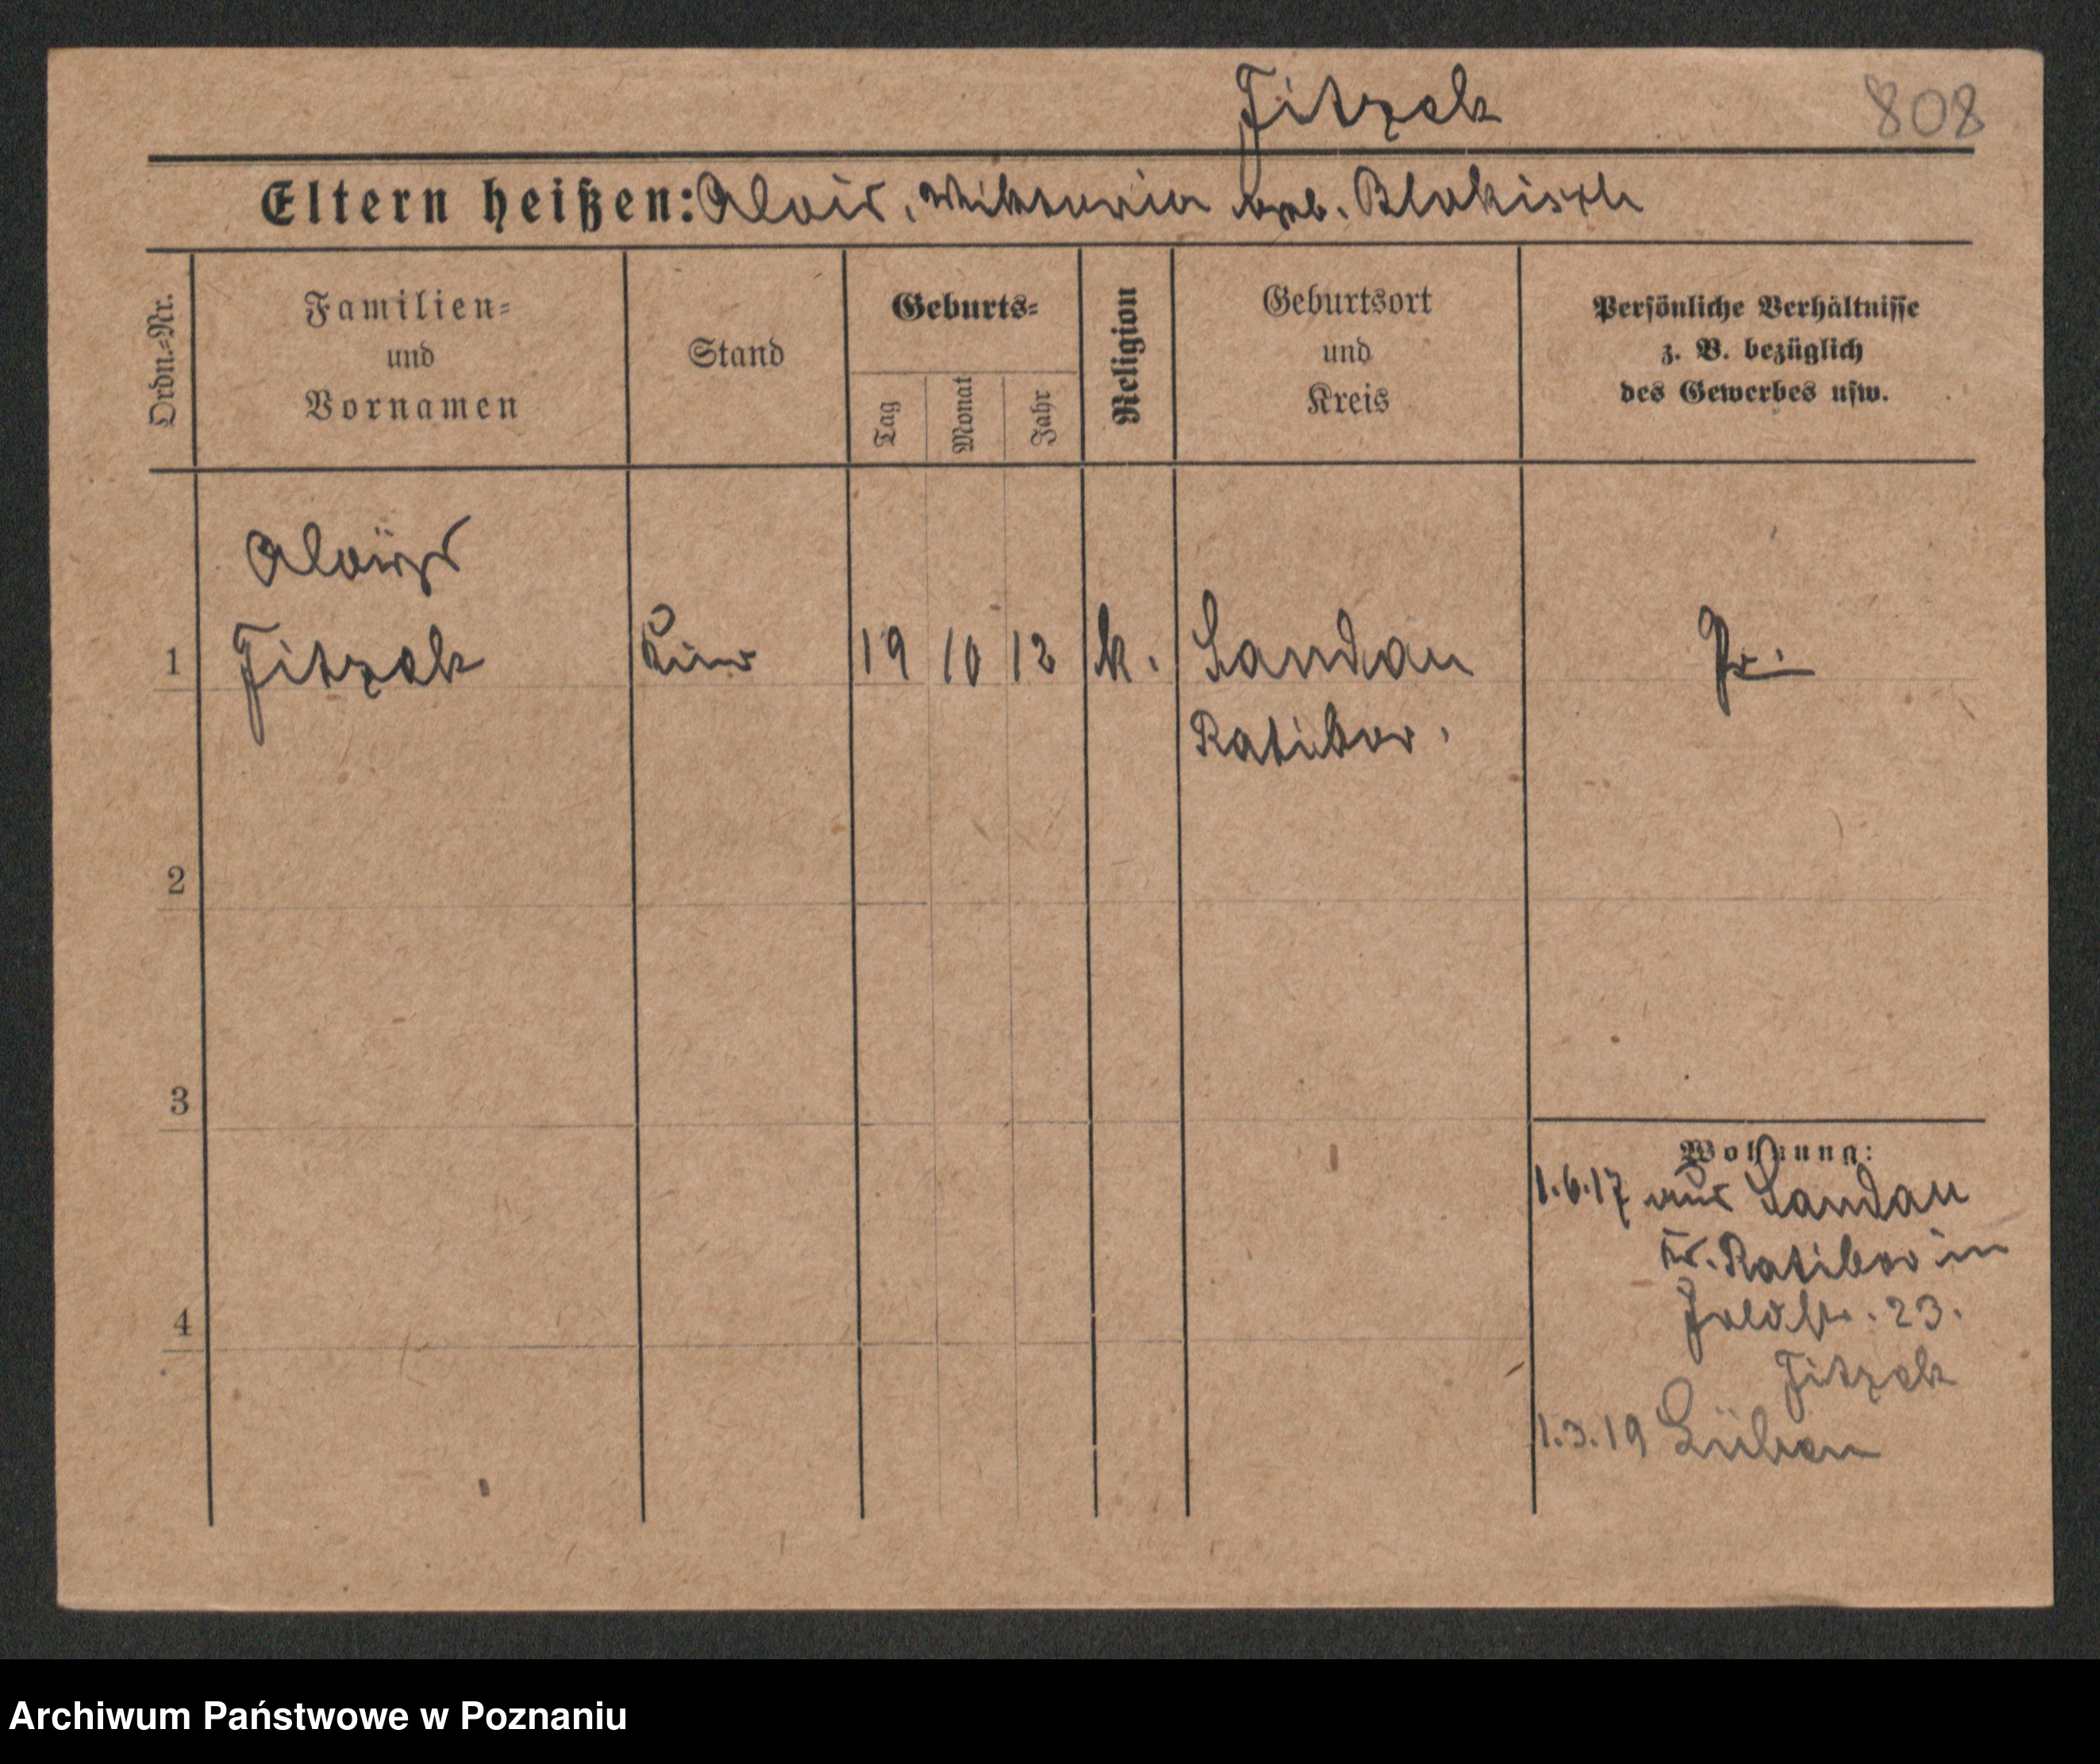 Fitzek
808
Eltern heißen: Alois, Wiktoria geb. Blokisch
Ordn.-Nr.
Familien-
und
Vornamen
Stand
Geburts-
Tag
Monat
Jahr
Religion
Geburtsort
und
Kreis
Persönliche Verhältnisse
z. B. bezüglich
des Gewerbes usw.
Aloiys
1 Fitzek 19 10 12 k. Sandau Pr.
Ratibor.
2
3
4
Wohnung:
1.6.17 aus Sandau
Kr. Ratibor in
Feldstr. 23.
Fitzek
1.3.19 Lüben
Archiwum Państwowe w Poznaniu